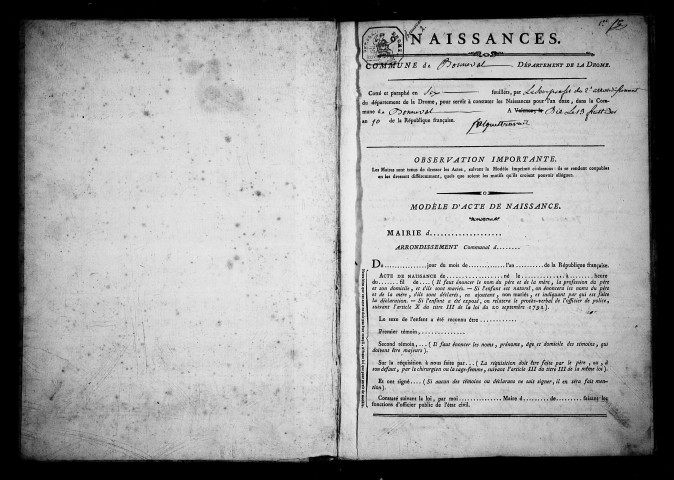 NAISSANCES.
COMMUNE de Bonneval DÉPARTEMENT DE LA DROME.
Cotté et paraphé en six feuillets, par le sous préfet du 2e arrondissement
du département de la Drome, pour servir à constater les Naissances pour l'an onze, dans la Com-
mune de Bonneval A Valence, le Die le 13 fruct.dor
an 10 de la République française.
OBSERVATION IMPORTANTE.
Les Maires sont tenus de dresser les Actes, suivant le Modèle imprimé ci-dessous: ils se rendent coupables
en les dressant différemment, quels que soient les motifs qu'ils croient pouvoir alléguer.
MODÈLE D'ACTE DE NAISSANCE.
MAIRIE d....................
ARRONDISSEMENT Communal d.......
DU..........jour du mois de..........l'an.........de la République française.
ACTE DE NAISSANCE de...............né le............à.........heure
du......fil de.... (Il faut énoncer le nom du père et de la mère, la profession du père
et son domicile, et s'ils sont mariés. — Si l'enfant est naturel, on énoncera les noms du père
et de la mère, s'ils sont déclarés, en ajoutant, non mariés, et indiquant par qui est faite
la déclaration. — Si l'enfant a été exposé, on relatera le procès-verbal de l'officier de police,
suivant l'article X du titre III de la loi du 20 septembre 1792).
Le sexe de l'enfant a été reconnu être ............
Premier témoin, ..............
Second témoin, ... (Il faut énoncer les noms, prénoms, âge et domicile des témoins, qui
doivent être majeurs).
Sur la réquisition à nous faite par... (La réquisition doit être faite par le père, ou, à
son défaut, par le chirurgien ou la sage-femme, suivant l'article III du titre III de la même loi).
Et ont signé.... (Si aucun des témoins ou déclarans ne sait signer, il en sera fait men-
tion).
Constaté suivant la loi, par moi...............Maire d.........de........faisant les
fonctions d'officier public de l'état civil.